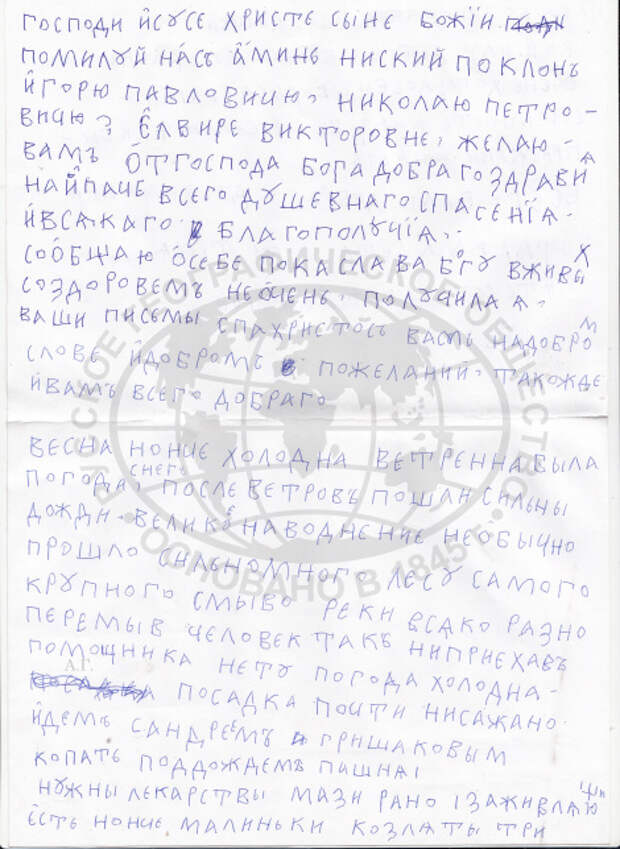 Господи Й҆сусе Христе сыне Божїи
помилуй на́съ А҆минь ниский поклонъ
И҆горю Павловичю, Николаю Петро-
вичю, Е҆лвире Викторовне, желаю-
вамъ О҆т Господа Бога добраго здравиѧ
най҆паче всего душевнаго спасенїѧ.
и҆всѧкаго благополучїѧ,.
сооб́щаю о́себе пока слава богу вживых
создоровемъ нео́чень, получила ѧ.
ваши письмы спахристосъ вамъ надобром
слове и҆добромъ пожеланий. такожде
и҆вамъ всего добраго
весна ноние холодна ветренна была
погода снегъ после ветровъ пошли сильны
дожди. велико наводнение необычно
прошло сильномного лесу самого
крупного смыво реки всѧко разно
перемыв человек такъ ниприехавъ
помощника нету погода холодна-
посадка почти нисажано.
и҆демъ сандреемъ гришаковым
копать поддождемъ пашна
нужны лекарствы мази рано ізаживлѧюшїи
е҆сть ноние малиньки козлѧты три
РУССКОЕ ГЕОГРАФИЧЕСКОЕ ОБЩЕСТВО
• ОСНОВАНО В 1845 г. •
А.Г.